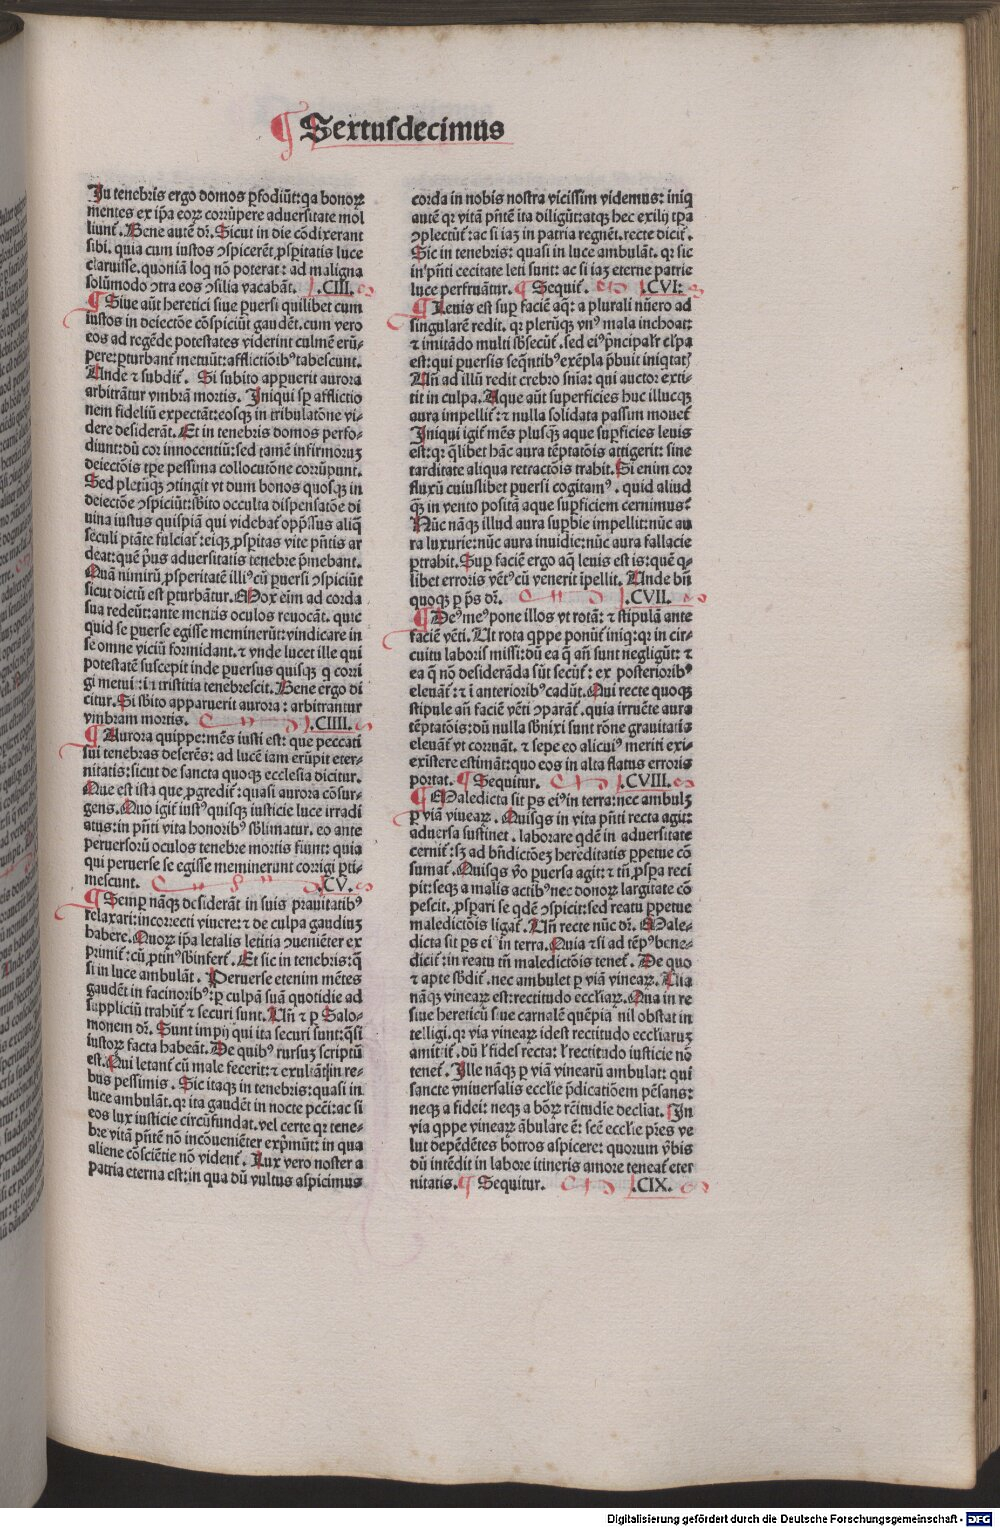 ¶ Sextusdecimus
In tenebris ergo domos ꝑfodiũt:qa bonoꝝ
mentes ex ip̃a eoꝝ corrũpere aduersitate mol
liunt᷑. Bene autẽ dr̃. Sicut in die cõdixerant
sibi. quia cum iustos ↄspicerẽt ꝓsꝑitatis luce
claruisse. quoniã loq̃ nõ poterat: ad maligna
solũmodo ↄtra eos ↄsilia vacabãt. .CIII.
¶ Siue aũt heretici siue ꝑuersi quilibet cum
iustos in deiectõe cõspiciũt gaudẽt.cum vero
eos ad regẽde potestates viderint culmẽ erũ-
pere:ꝑturbant᷑ metuũt:afflictiõibꝰ tabescunt.
Unde ⁊ subdit᷑. Si subito apꝑuerit aurora
arbitrãtur vmbrã mortis. Iniqui sꝑ afflictio
nem fideliũ expectãt:eosqꝫ in tribulatõne vi-
dere desiderãt. Et in tenebris domos perfo-
diunt:dũ cor innocentiũ:sed tamẽ infirmoruꝫ
deiectõis tꝑe pessima collocutõne corrũpunt.
Sed pleruqꝫ ↄtingit vt dum bonos quosqꝫ in
deiectõe ↄspiciũt:sb̃ito occulta dispensatõe di
uina iustus quispiã qui videbat᷑ opp̃ssus aliq̃
seculi ptãte fulciat᷑:eiqꝫ ꝓsꝑitas vite pñtis ar
deat:quẽ pꝰus aduersitatis tenebre p̃mebant.
Quã nimirũ ꝓsperitatẽ illiꝰ cũ ꝑuersi ↄspiciũt
sicut dictũ est ꝑturbãtur. Mox eim̃ ad corda
sua redeũt:ante mentis oculos reuocãt. quic
quid se ꝑuerse egisse meminerũt:vindicare in
se omne viciũ formidant. ⁊ vnde lucet ille qui
potestatẽ suscepit inde ꝑuersus quisqꝫ q corri
gi metuit in tristitia tenebrescit. Bene ergo di
citur. Si sb̃ito apparuerit aurora : arbitrantur
vmbram mortis. .CIIII.
¶ Aurora quippe:mẽs iusti est: que peccati
sui tenebras deserẽs: ad lucẽ iam erũpit eter-
nitatis:sicut de sancta quoqꝫ ecclesia dicitur.
Que est ista que ꝓgredit᷑: quasi aurora cõsur-
gens. Quo igit᷑ iustꝰ quisqꝫ iusticie luce irradi
atus:in pñti vita honoribꝰ sb̃limatur. eo ante
peruersorũ oculos tenebre mortis fiunt: quia
qui peruerse se egisse meminerunt corrigi ꝑti-
mescunt. .CV.
¶ Semꝑ nãqꝫ desiderãt in suis prauitatibꝰ
relaxari:incorrecti viuere: ⁊ de culpa gaudiuꝫ
habere. Quoꝝ ip̃a letalis letitia ↄueniẽter ex
primit᷑: cũ ꝓtinꝰ sb̃infert᷑. Et sic in tenebris:q̃
si in luce ambulãt. Peruerse etenim mẽtes
gaudẽt in facinoribꝰ: ꝑ culpã suã quotidie ad
suppliciũ trahũt᷑ ⁊ securi sunt. Uñ ⁊ ꝑ Salo-
monem dr̃. Sunt impij qui ita securi sunt:q̃si
iustoꝝ facta habeãt. De quibꝰ rursuꝫ scriptũ
est. Qui letant᷑ cũ male fecerit:⁊ exultãt in re-
bus pessimis. Sic itaqꝫ in tenebris:quasi in
luce ambulãt.qꝛ ita gaudẽt in nocte pcc̃i:ac si
eos lux iusticie circũfundat.vel certe qꝛ tene-
bre vitã pñtẽ nõ incõueniẽter exp̃mũt:in qua
aliene cõsciẽtie nõ vident᷑. Lux vero nostra
patria eterna est:in qua dũ vultus aspicimus
corda in nobis nostra vicissim videmus: iniq
autẽ qꝛ vitã pñtẽ ita diligũt:atqꝫ hec exilij tꝑa
ↄplectũt᷑: ac si iaꝫ in patria regnẽt.recte dicit᷑.
Sic in tenebris: quasi in luce ambulãt. qꝛ sic
in pñti cecitate leti sunt: ac si iaꝫ eterne patrie
luce perfruãtur.¶ Sequit᷑. .CVI:
¶ Leuis est suꝑ faciẽ aq̃: a plurali nũero ad
singularẽ redit. qꝛ plerũqꝫ vnꝰ mala inchoat:
⁊ imitãdo multi sb̃secũt᷑. sed eiꝰ p̃ncipalr̃ culpa
est:qui ꝑuersis seq̃ntibꝰ exẽpla p̃buit iniqtat᷑
Uñ ad illũ redit crebro snĩa: qui auctor exti-
tit in culpa. Aque aũt superficies huc illucqꝫ
aura impellit᷑: ⁊ nulla solidata passim mouet᷑
Iniqui igit᷑ mẽs plusq̃ꝫ aque suꝑficies leuis
est:qꝛ q̃libet hãc aura tẽptatõis attigerit: sine
tarditate aliqua retractõis trahit. Si enim cor
fluxũ cuiuslibet ꝑuersi cogitamꝰ. quid aliud
q̃ꝫ in vento positã aque suꝑficiem cernimus?
Nũc nãqꝫ illud aura suꝑbie impellit:nũc au
ra luxurie:nũc aura inuidie:nũc aura fallacie
ꝑtrahit. Suꝑ faciẽ ergo aq̃ leuis est is:quẽ q̃-
libet erroris vẽtꝰ cũ venerit ĩpellit. Unde bñ
quoqꝫ ꝑ ꝓs dr̃. .CVII.
¶ Deꝰ meꝰ pone illos vt rotã: ⁊ stipulã ante
faciẽ vẽti. Ut rota qppe ponũt᷑ iniq:qꝛ in cir-
cuitu laboris missi:dũ ea q̃ añ sunt negligũt: ⁊
ea q̃ nõ desiderãda sũt secũt᷑: ex posterioribꝰ
eleuãt᷑: ⁊ ĩ anterioribꝰ cadũt. Qui recte quoqꝫ
stipule añ faciẽ vẽti ↄparãt᷑. quia irruẽte aura
tẽptatõis:dũ nulla sb̃nixi sunt rõne grauitatis
eleuãt᷑ vt corruãt. ⁊ sepe eo alicuiꝰ meriti exi-
existere estimãt:quo eos in alta flatus erroris
portat.¶ Sequitur. .CVIII.
¶ Maledicta sit ꝑs eiꝰ in terra:nec ambulꝫ
ꝑ viã vineaꝝ. Quisqs in vita pñti recta agit:
aduersa sustinet . laborare qdẽ in aduersitate
cernit᷑: sꝫ ad bñdictõeꝫ hereditatis ꝑpetue cõ
sumat᷑. Quisqs v̾o ꝑuersa agit: ⁊ tñ ꝓsꝑa reci
pit:seqꝫ a malis actibꝰ nec donoꝝ largitate cõ
pescit. ꝓspari se qdẽ ↄspicit:sed reatu ꝑpetue
maledictõis ligat᷑. Uñ recte nũc dr̃. Male-
dicta sit ꝑs eiꝰ in terra. Quia ⁊si ad tẽpꝰ bene-
dicit᷑:in reatu tñ maledictõis tenet᷑. De quo
⁊ apte sb̃dit᷑. nec ambulet ꝑ viã vineaꝝ. Uia
nãqꝫ vineaꝝ est:rectitudo eccl̃iaꝝ. Qua in re
siue hereticũ siue carnalẽ quẽpiã nil obstat in
telligi.qꝛ via vineaꝝ idest rectitudo eccl̃iaruꝫ
amittit᷑. dũ l᷑ fides recta: l᷑ rectitudo iusticie nõ
tenet᷑. Ille nãqꝫ ꝑ viã vinearũ ambulat: qui
sancte vniuersalis eccl̃ie p̃dicatiõem pẽsans:
neqꝫ a fidei: neqꝫ a bõꝝ rc̃itudie decliat. In
via qppe vineaꝝ ãbulare ẽ: sc̃e eccl̃ie p̃res ve
lut depẽdẽtes botros aspicere: quorum v̾bis
dũ intẽdit in labore itineris amore teneat᷑ eter
nitatis.¶ Sequitur. .CIX.
Digitalisierung gefördert durch die Deutsche Forschungsgemeinschaft - DFG